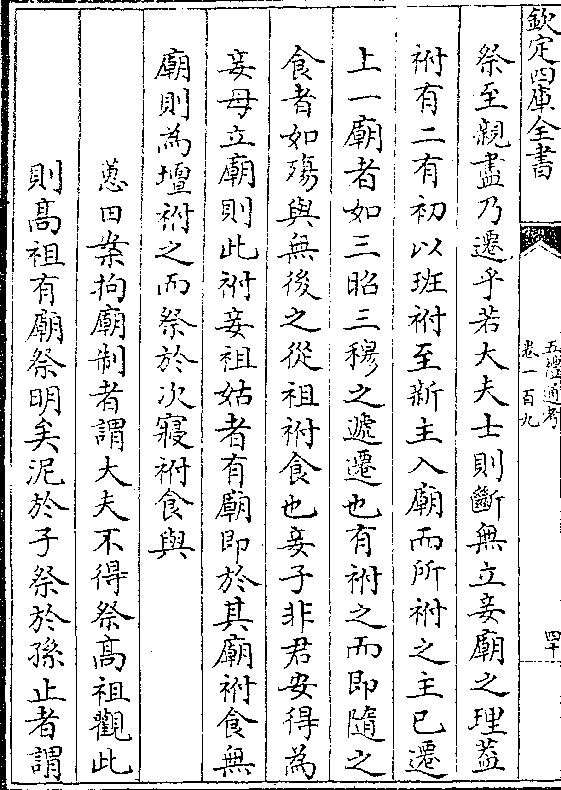 欽定四庫全書
五禮通考
卷一百九
四十
祭至親盡乃遷乎若大夫士則斷無立妾廟之理葢
祔有二有初以班祔至新主入廟而所祔之主已遷
上一廟者如三昭三穆之遞遷也有祔之而即隨之
食者如殤與無後之從祖祔食也妾子非君安得為
妾母立廟則此祔妾祖姑者有廟即於其廟祔食無
廟則為壇祔之而祭於次寢祔食與
蕙田案拘廟制者謂大夫不得祭髙祖觀此
則髙祖有廟祭明矣泥於子祭於孫止者謂